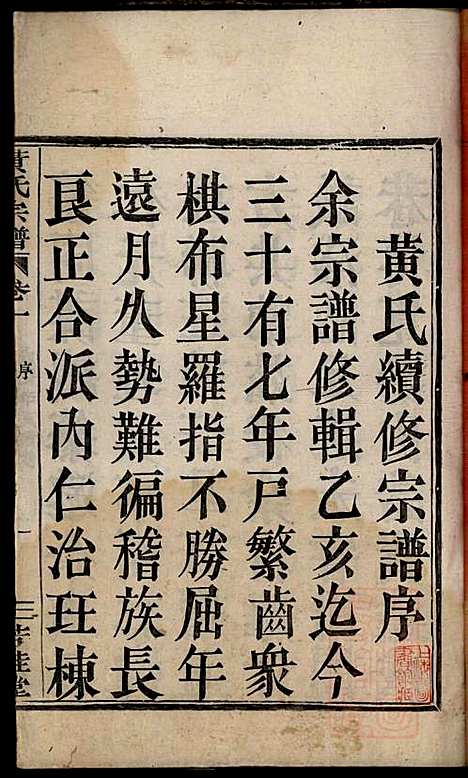 黃氏續修宗譜序
余宗譜修輯乙亥迄今
三十有七年戸繁齒衆
棋布星羅指不勝屈年
遠月久勢難徧稽族長
艮正合派內仁治玨棟
黃氏宗譜
卷一
序
一
堂